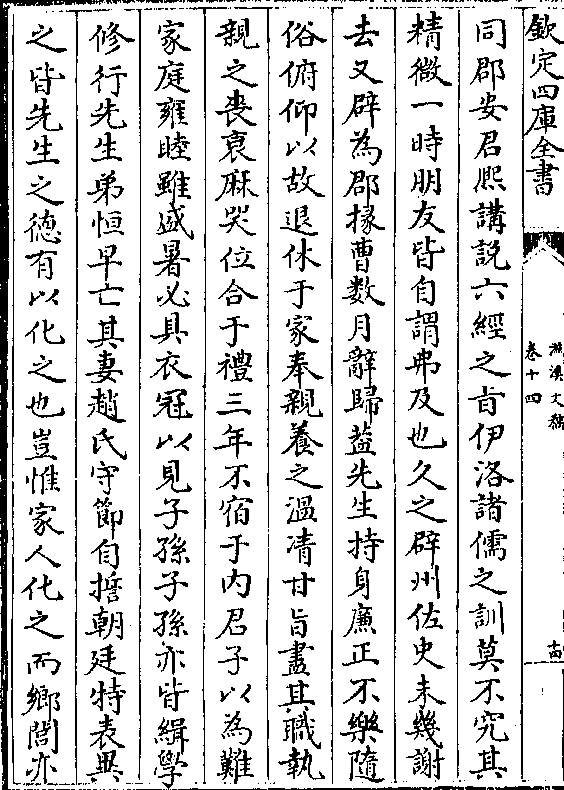 欽定四庫全書
滋溪文稿
卷十四
十四
同郡安君熙講說六經之旨伊洛諸儒之訓莫不究其
精微一時朋友皆自謂弗及也久之辟州佐史未幾謝
去又辟為郡掾曹數月辭歸葢先生持身廉正不樂隨
俗俯仰以故退休于家奉親養之溫凊甘旨盡其職執
親之喪衰麻哭位合于禮三年不宿于內君子以為難
家庭雍睦雖盛暑必具衣冠以見子孫子孫亦皆緝學
修行先生弟恒早亡其妻趙氏守節自誓朝廷特表異
之皆先生之德有以化之也豈惟家人化之而鄉閭亦